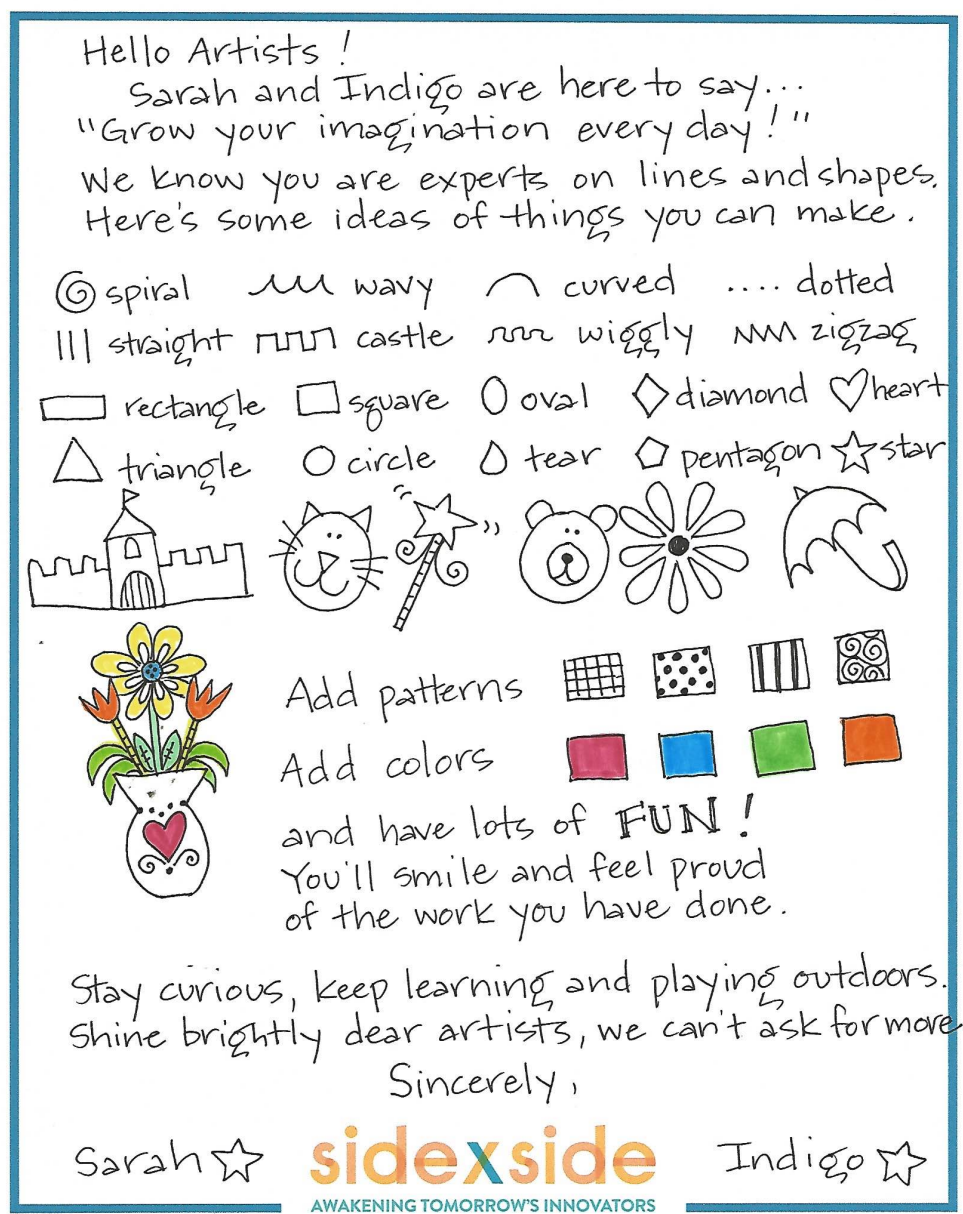 Hello Artists!
Sarah and Indigo are here to say...
"Grow your imagination every day!"
We know you are experts on lines and shapes.
Here's some ideas of things you can make.
spiral wavy curved .... dotted
straight castle wiggly zigzag
rectangle square oval diamond heart
triangle circle tear pentagon star
Add patterns
Add colors
and have lots of FUN!
You'll smile and feel proud
of the work you have done.
Stay curious, keep learning and playing outdoors.
Shine brightly dear artists, we can't ask for more
Sincerely,
Sarah sidexside Indigo
AWAKENING TOMORROW'S INNOVATORS